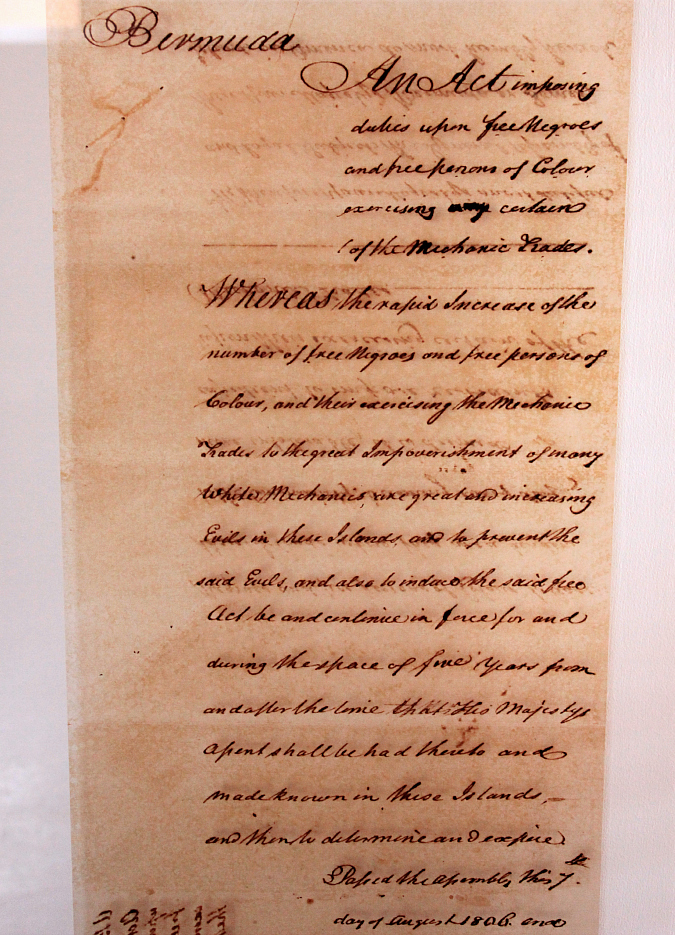 Bermuda
An Act imposing
duties upon free Negroes
and free persons of Colour
exercising certain
of the Mechanic Trades.
Whereas the rapid Increase of the
number of free Negroes and free persons of
Colour, and their exercising the Mechanic
Trades to the great Impoverishment of many
White Mechanics, are great and increasing
Evils in these Islands, and to prevent the
said Evils, and also to induce the said free
Act be and continue in force for and
during the space of five Years from
and after the time that His Majestys
assent shall be had thereto and
made known in these Islands,
and then to determine and expire
Passed the assembly this 7th
day of August 1806. and